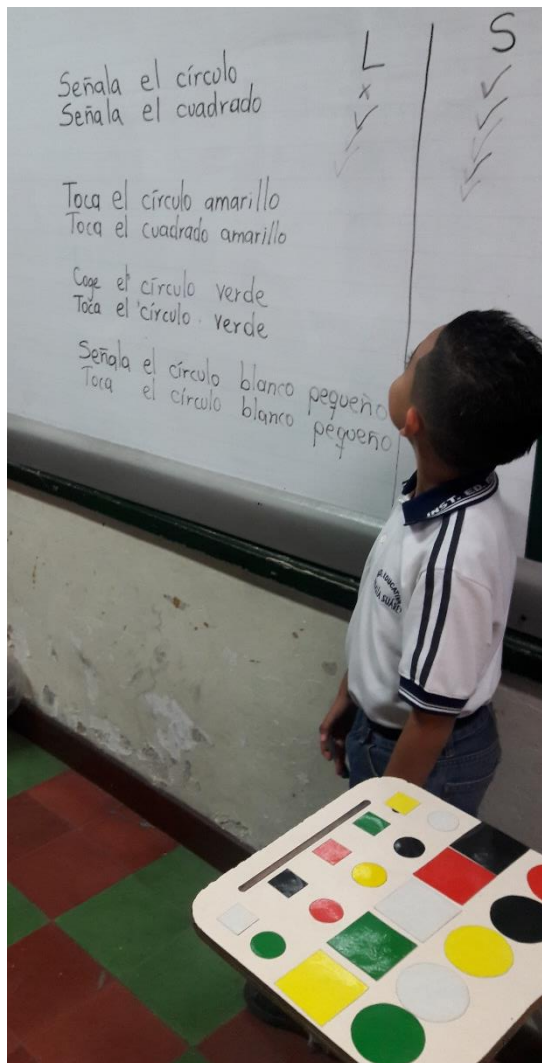 L S
Señala el círculo x ✓
Señala el cuadrado ✓ ✓
Toca el círculo amarillo
Toca el cuadrado amarillo
Coge el círculo verde
Toca el círculo verde
Señala el círculo blanco pequeño
Toca el círculo blanco pequeño
INST. ED.
EDUCATIVA
SUÁREZ